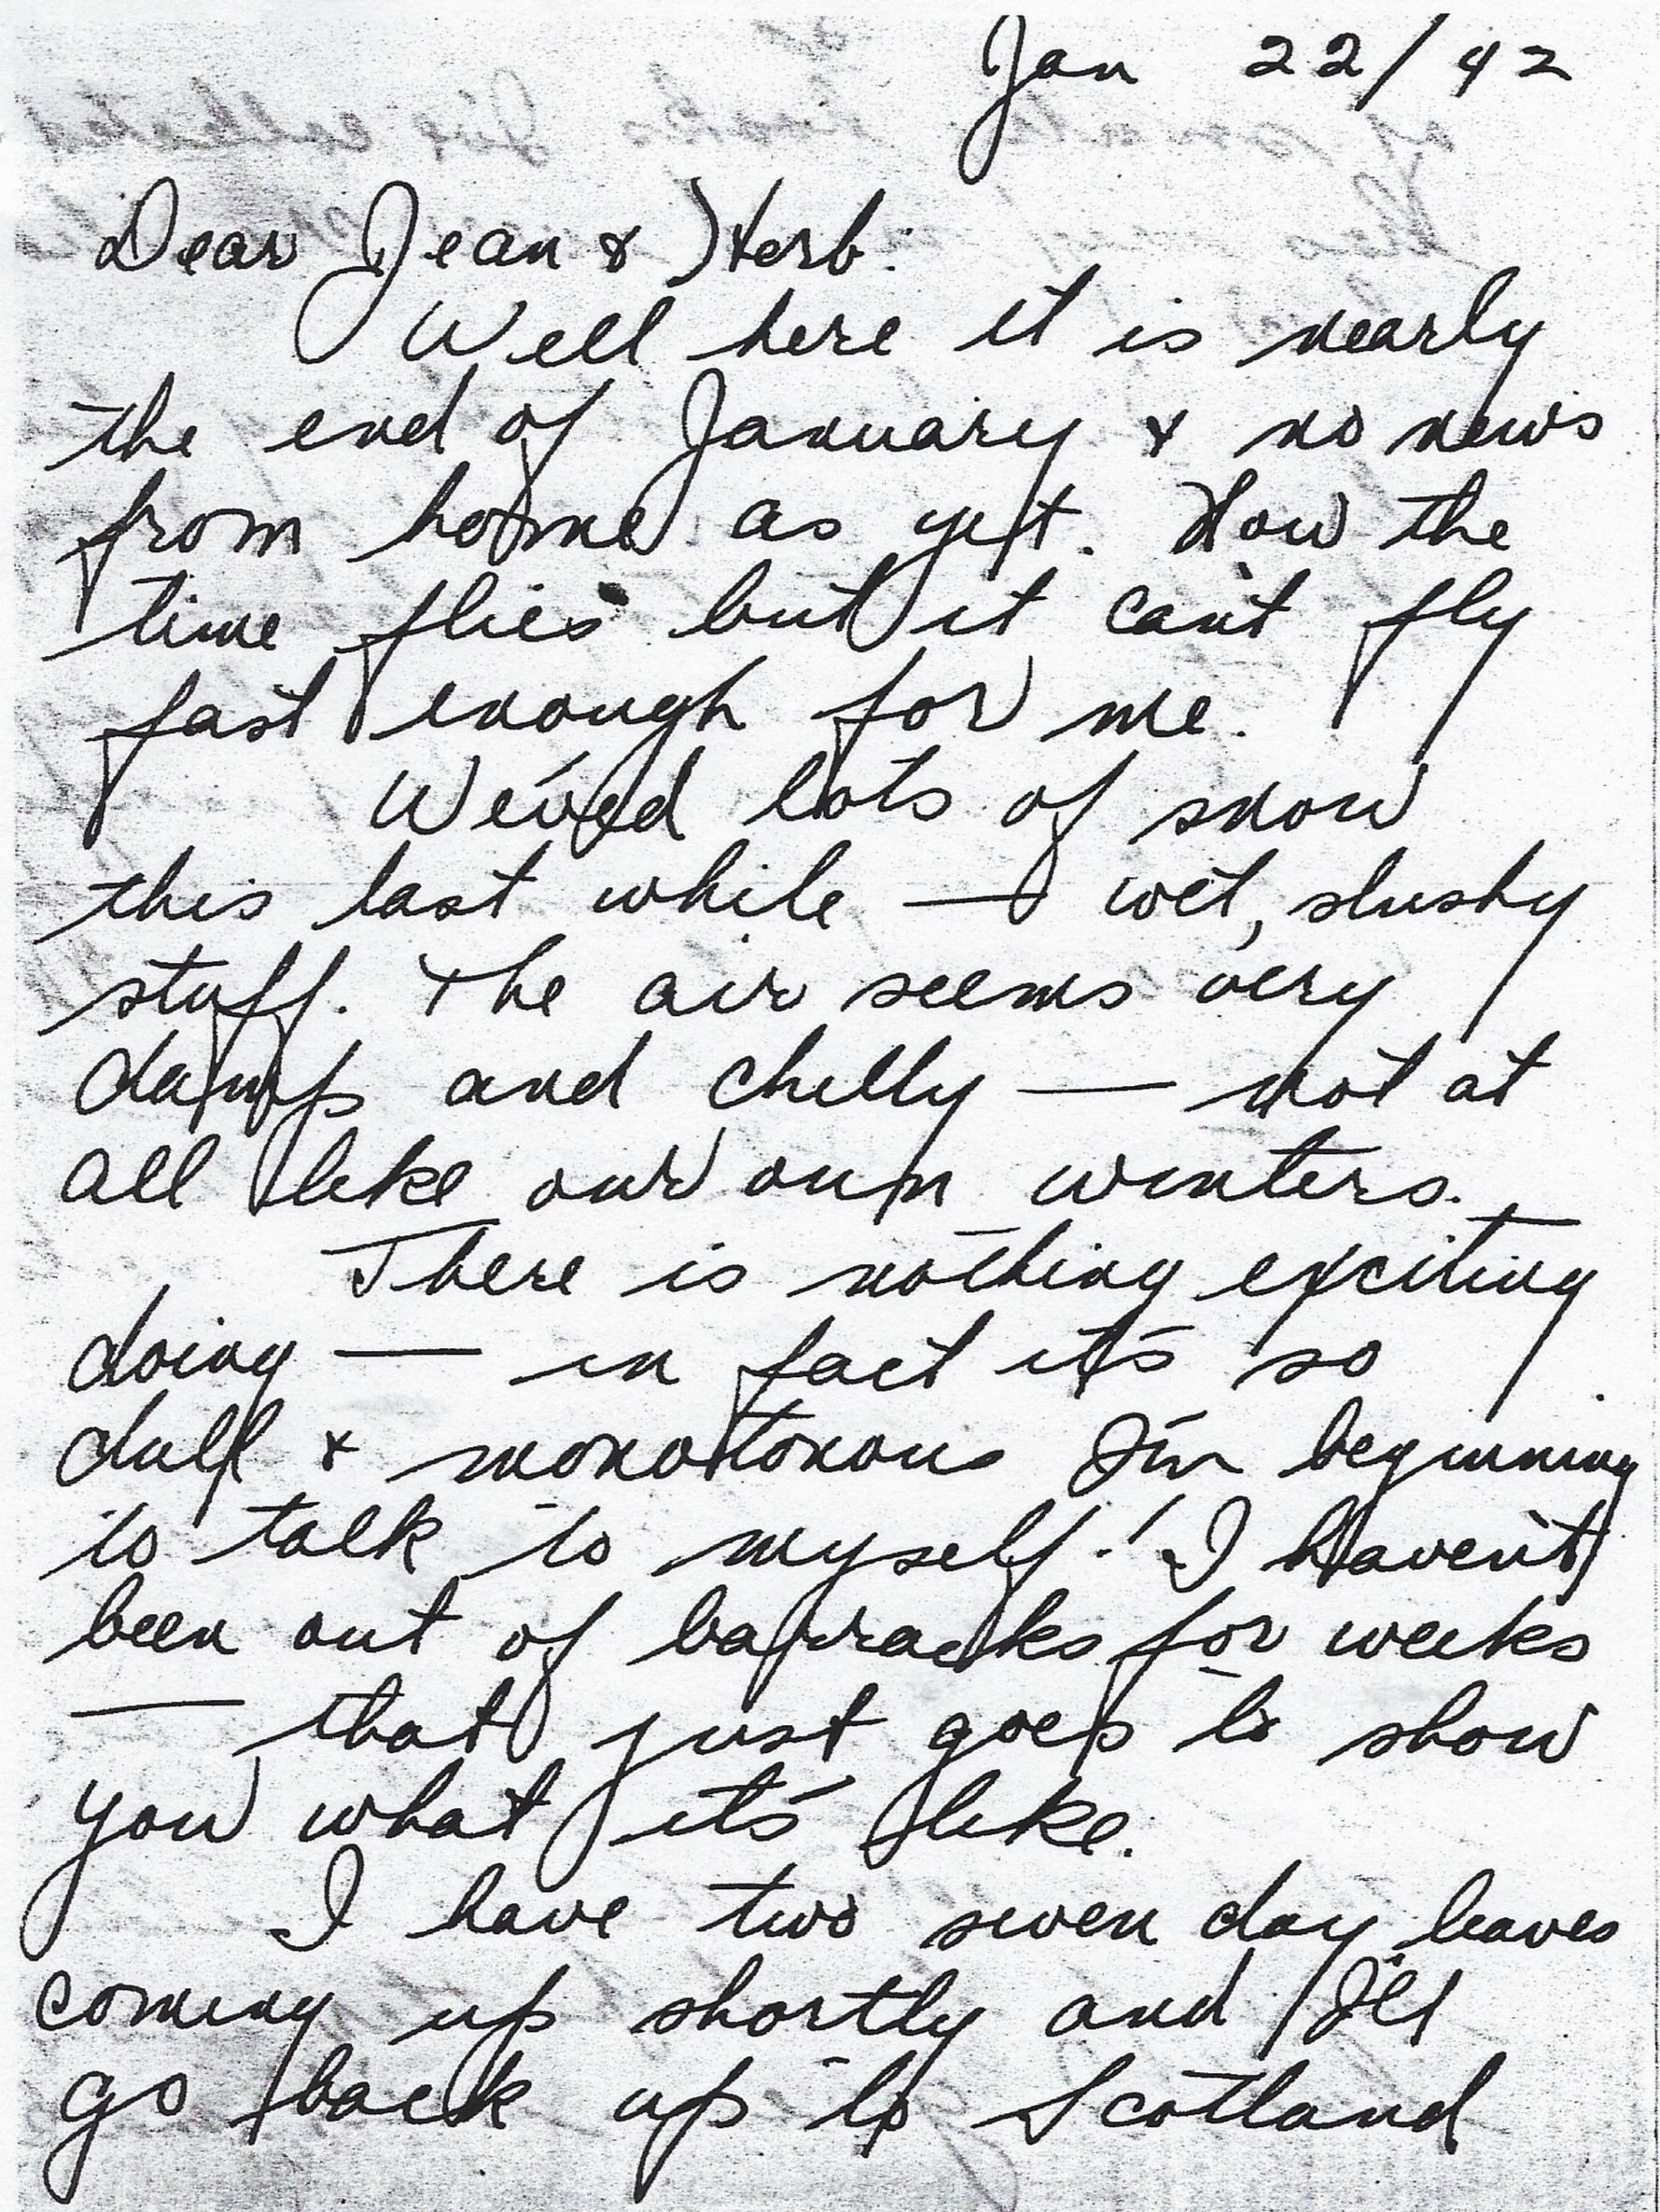 Jan 22/42
Dear Jean & Herb:
Well here it is nearly
the end of January & no news
from home as yet. How the
time flies but it can't fly
fast enough for me.
We've had lots of snow
this last while — wet, slushy
stuff. The air seems very
damp and chilly — not at
all like our own winters.
There is nothing exciting
doing — in fact it's so
dull & monotonous I'm beginning
to talk to myself! I haven't
been out of barracks for weeks
— that just goes to show
you what it's like.
I have two seven day leaves
coming up shortly and I'll
go back up to Scotland